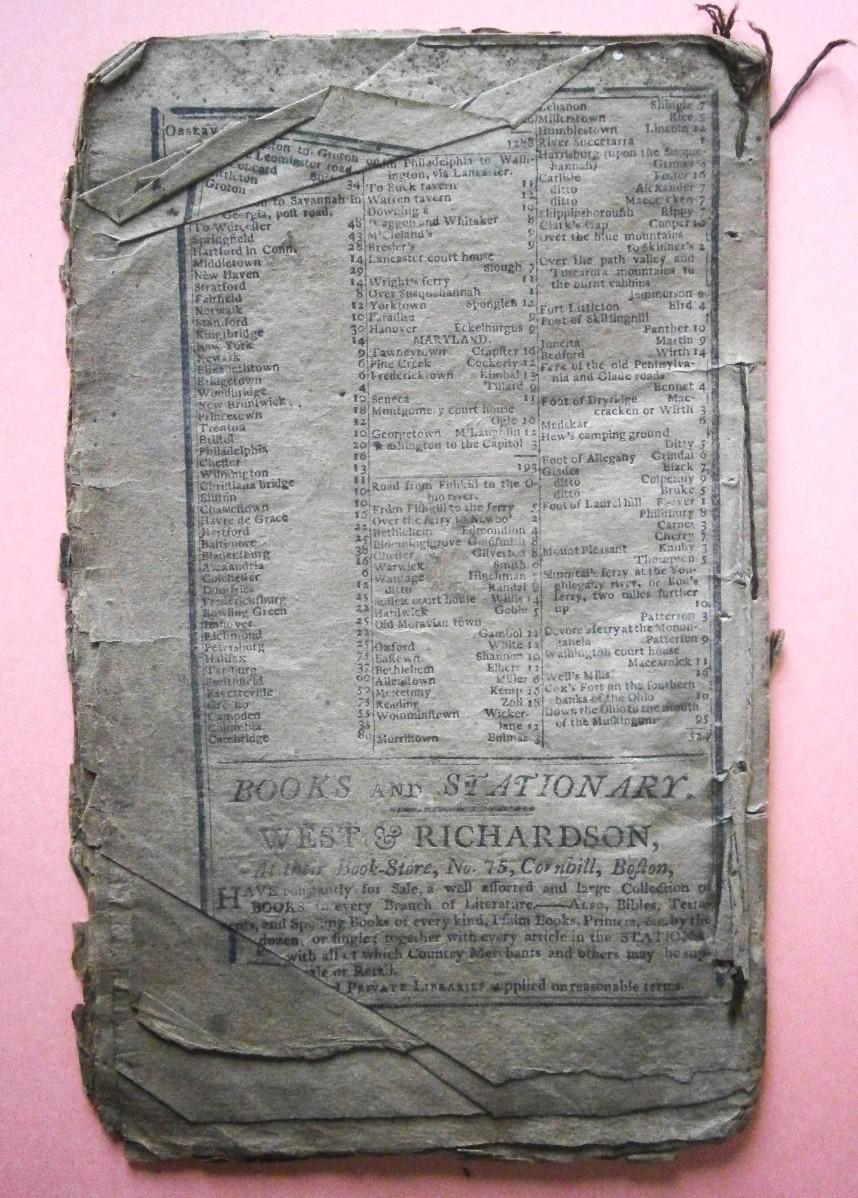 OBSERV
to Groton
Leominster road
Concord
Littleton
Groton 34
to Savannah in
Georgia, poſt road.
To Worceſter 48
Springfield 43
Hartford in Conn. 28
Middletown 14
New Haven 29
Stratford 14
Fairfield 8
Norwalk 12
Stamford 10
Kingſbridge 30
New York 14
Newark 9
Elizabethtown 6
Bridgetown 6
Woodbridge 4
New Brunſwick 10
Princetown 18
Trenton 12
Briſtol 10
Philadelphia 20
Cheſter 16
Wilmington 13
Chriſtiana bridge 11
Elkton 10
Charleſtown 10
Havre de Grace 16
Hartford
Baltimore 25
Bladenſburg 38
Alexandria 16
Colcheſter 6
Dumfries
Frederickſburg 25
Bowling Green 22
Hanover 25
Richmond 22
Peterſburg 25
Halifax 75
Tarburg 37
Smithfield 60
Fayetteville 52
75
Camden 55
Columbia 35
Cambridge 80
1288
Philadelphia to Waſh-
ington, via Lancaſter.
To Buck tavern 11
Warren tavern
Downing's
Waggon and Whitaker 8
M'Cleland's 9
Breſler's 9
Lancaſter court houſe
Slough 7
Wright's ferry 11
Over Suſquehannah 1
Yorktown Spongler 12
Paradiſe 9
Hanover Eckelburgus 9
MARYLAND.
Tawneytown Crapſter 16
Pine Creek Cockerly 12
Fredericktown Kimbal 13
Tillard 9
Seneca 11
Montgomery court houſe
Ogle 10
Georgetown M'Laughlin 12
Waſhington to the Capitol
193
Road from Fiſhkil to the O-
hio river.
From Fiſhkill to the ferry 5
Over the ferry to Newbo' 2
Bethlehem Edmondſton 4
Bloominggrove Goldſmith 8
Cheſter Gilverton 8
Warwick Smith
Wantage Hinchman
ditto Randal
Suſſex court houſe Willis 14
Hardwick Goble
Old Moravian town
Gambol 12
Oxford White 12
Eaſtown Shannon 10
Bethlehem Elbert 12
Allenſtown Miller 6
Mexetony Kemp 18
Reading Zoll 18
Womminſtown Wicker-
ſane 13
Morriſtown Bolmas
Lebanon Shingle 7
Millerstown Rice 5
Humbleſtown Lincoln 12
River Sueetarra 1
Harriſburg (upon the Suſque-
hannah) Grimes 3
Carliſle Foſter 16
ditto Alexander 7
ditto Maccracken 7
Shippinſborough Rippy 7
Clark's Gap Cooper 10
Over the blue mountains
to Skinner's 2
Over the path valley and
Tuſcarora mountains to
the burnt cabbins
Jemmerson 8
Fort Littleton Bird 4
Foot of Skillinghill
Panther 10
Juneita Martin 9
Bedford Wirth 14
Fork of the old Pennſylva-
nia and Glade roads
Bonnet 4
Foot of Dryridge Mac-
cracken or Wirth 3
Medskar 6
Hew's camping ground
Ditty 5
Foot of Allegany Grindal 6
Glades Black 7
ditto Colpenny 9
ditto Bruke 5
Foot of Laurel hill 1
Philbury 8
Carnes 3
Cherry 7
Mount Pleaſant Knuby 3
Thompſen 5
Simmral's ferry at the You-
ghiegany river, or Kud's
ferry, two miles further
up 10
Patterson 3
Devore's ferry at the Monon-
gahela Patterſon 9
Waſhington court houſe
Macearnick 11
Well's Mills 16
Cox's Fort on the ſouthern
banks of the Ohio 10
Down the Ohio to the mouth
of the Muſkingum 95
524
BOOKS AND STATIONARY.
WEST & RICHARDSON,
At their Book-Store, No. 75, Cornhill, Boſton,
HAVE conſtantly for Sale, a well aſſorted and large Collection of
BOOKS in every Branch of Literature.——ALSO, Bibles, Teſta-
ents, and Spelling Books of every kind, Pſalm Books, Primers, &c. by the
dozen, or ſingle; together with every article in the STATIONA
with all of which Country Merchants and others may be sup-
ale or Retail.
PRIVATE LIBRARIES supplied on reaſonable terms.